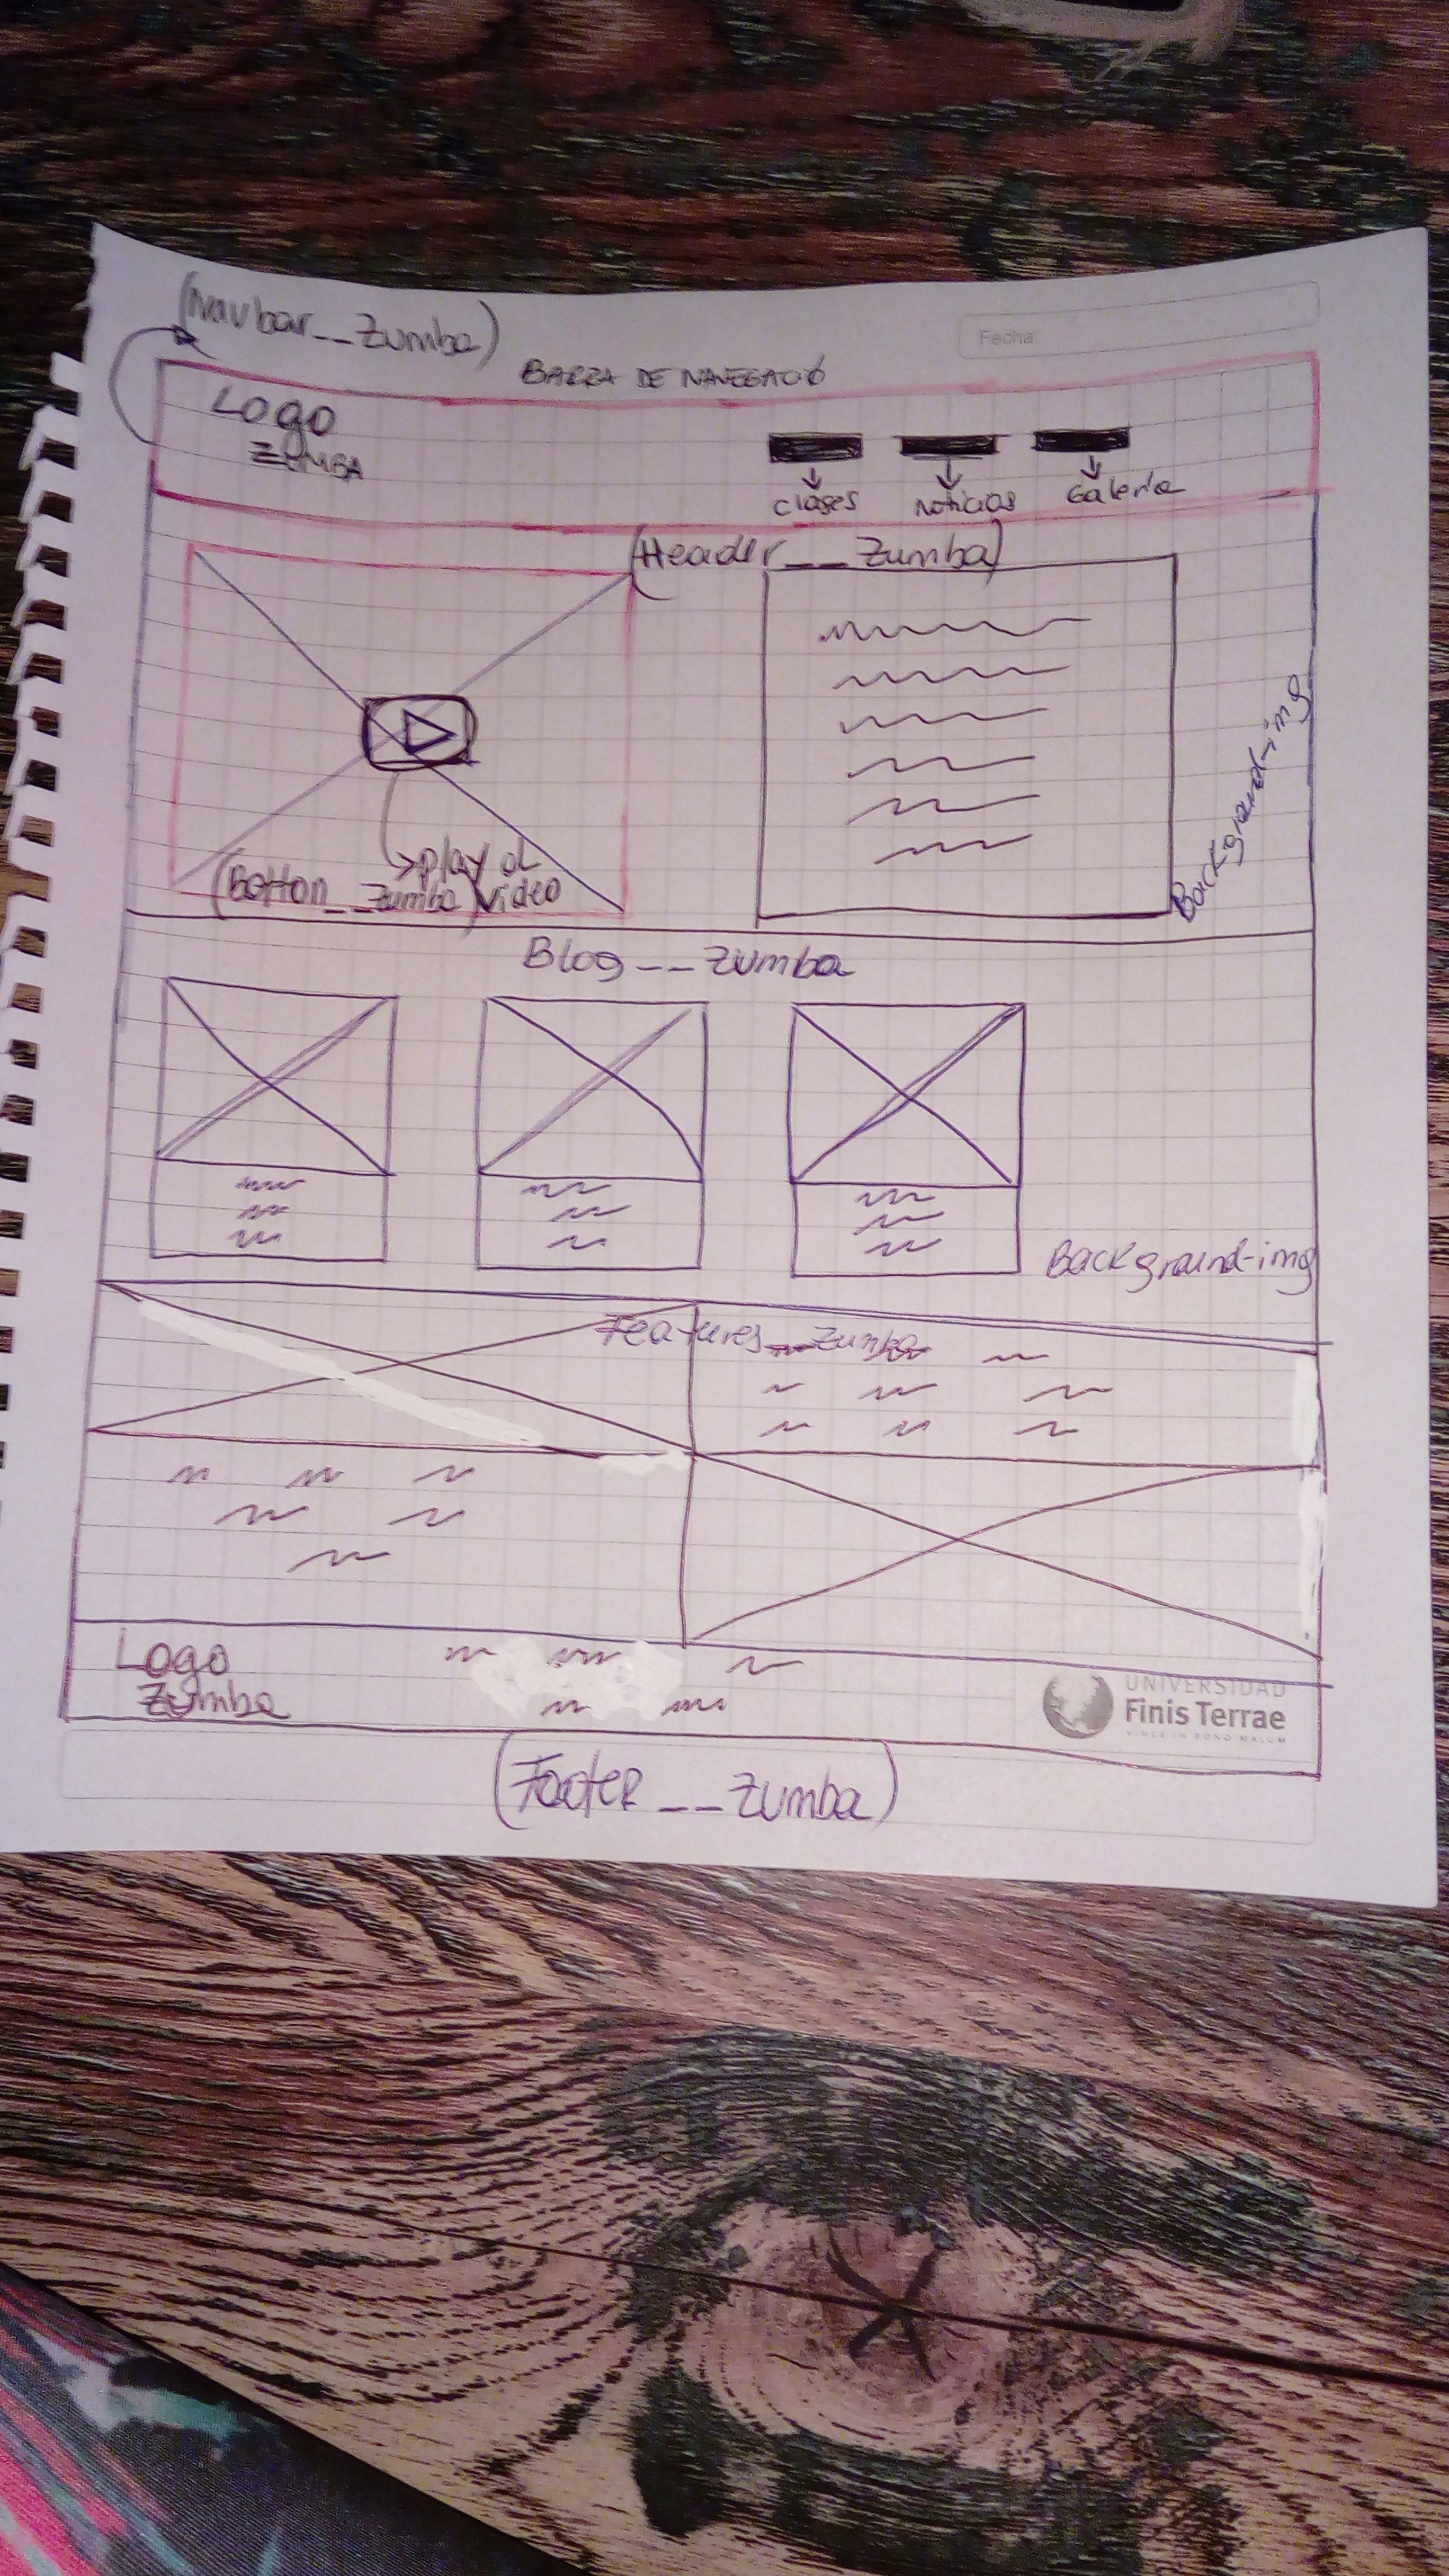 (Navbar__Zumba)
Fecha
BARRA DE NAVEGACIÓ
Logo
ZUMBA
clases
Noticias
Galeria
(Header__Zumba)
Background-img
play al
(Botton__Zumba) Video
Blog__Zumba
Background-img
Features__Zumba
Logo
Zumba
UNIVERSIDAD
Finis Terrae
VINCE IN BONO MALUM
(Footer__Zumba)